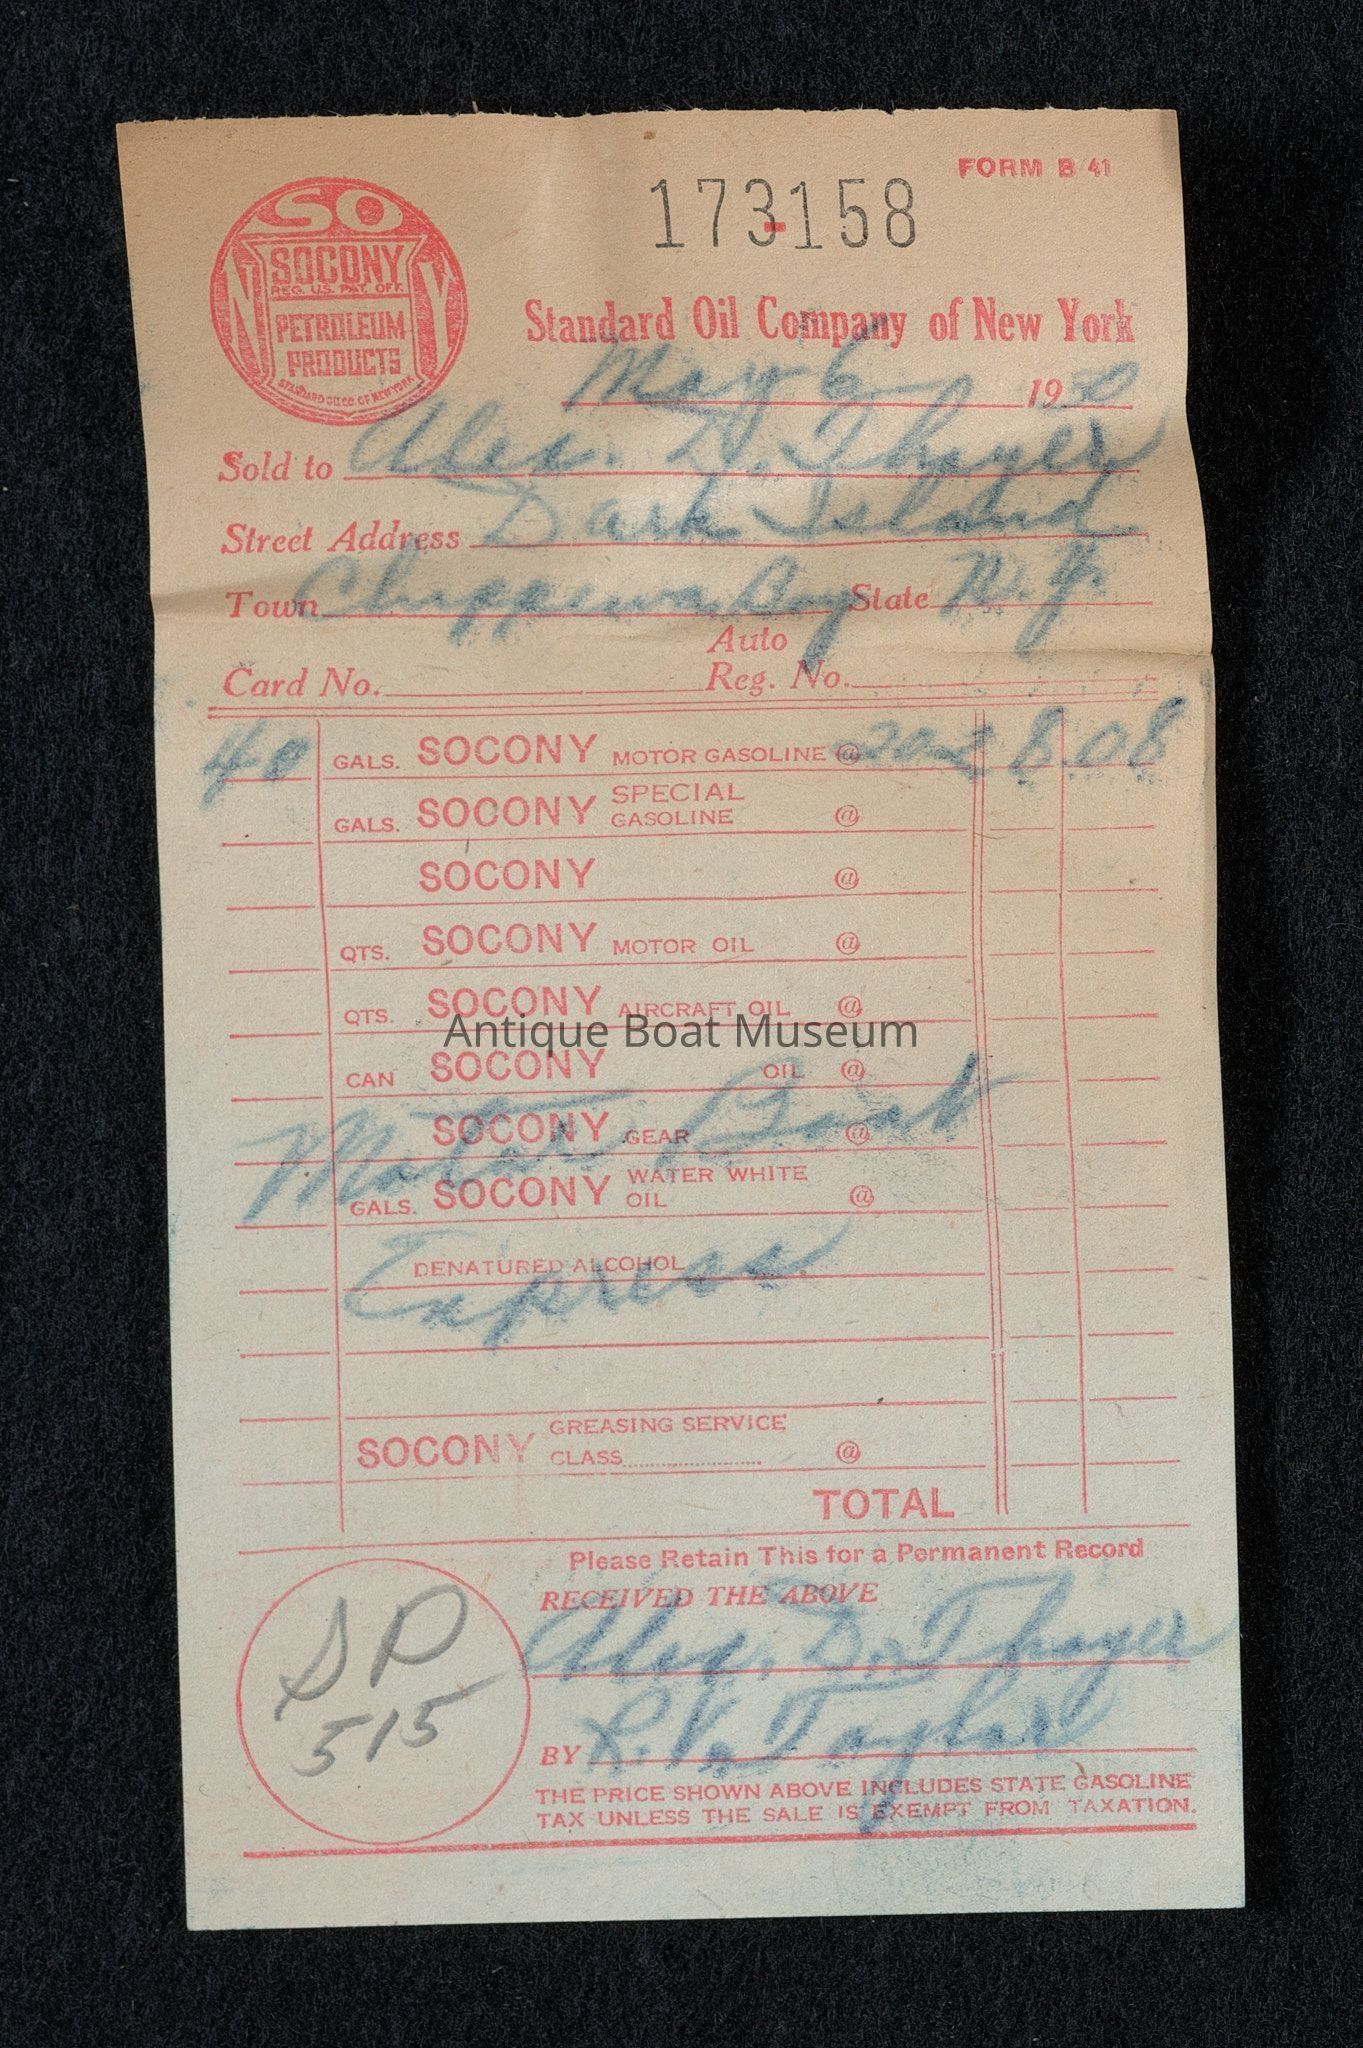 FORM B 41
173-158
SO
NY
SOCONY
REG. U.S. PAT. OFF.
PETROLEUM
PRODUCTS
STANDARD OIL CO. OF NEW YORK
Standard Oil Company of New York
May 6 1930
Sold to Alex. D. Thayer
Street Address Dark Island
Town Chippewa Bay State N.Y.
Auto
Card No. Reg. No.
40 GALS. SOCONY MOTOR GASOLINE @ 202 8.08
GALS. SOCONY SPECIAL GASOLINE @
SOCONY @
QTS. SOCONY MOTOR OIL @
QTS. SOCONY AIRCRAFT OIL @
Antique Boat Museum
CAN SOCONY OIL @
Motor Boat
SOCONY GEAR @
GALS. SOCONY WATER WHITE OIL @
DENATURED ALCOHOL
Express
SOCONY GREASING SERVICE
CLASS @
TOTAL
Please Retain This for a Permanent Record
RECEIVED THE ABOVE
Alex. D. Thayer
BY R.V. Taylor
SD
515
THE PRICE SHOWN ABOVE INCLUDES STATE GASOLINE
TAX UNLESS THE SALE IS EXEMPT FROM TAXATION.